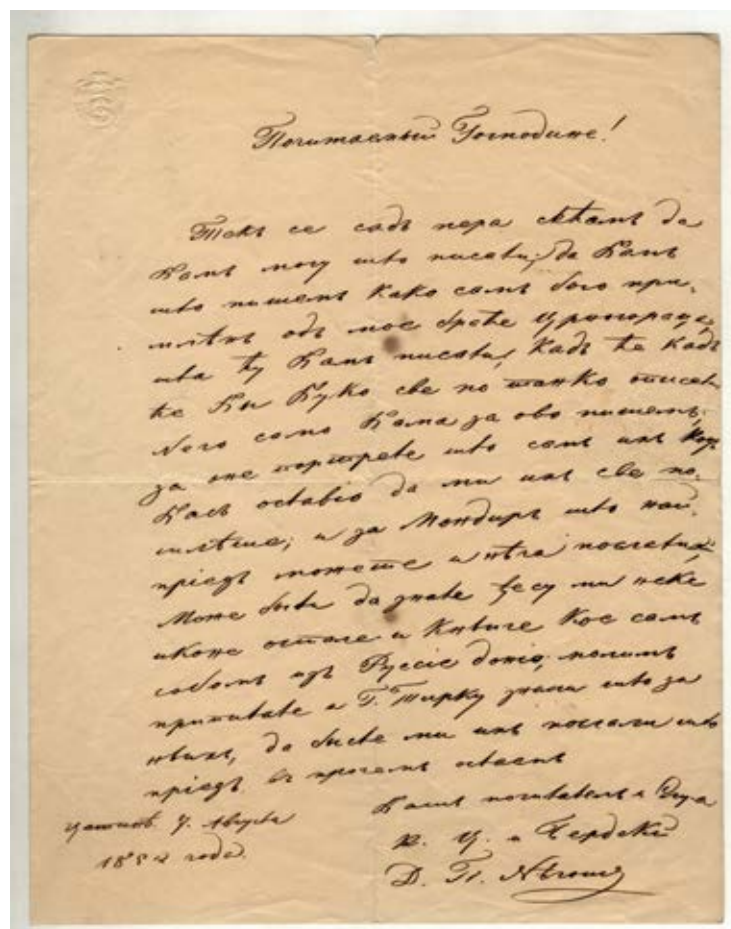 Почитаемый Господине!
Текъ се садъ пера сећамъ да
Вамъ могу што писати; да Вамъ
што пишемъ како самъ био при-
млѣнъ одъ мое браће Црногораца,
шта ћу Вамъ писати, кадъ ће кадъ
ће Вы Вуко све по танко описати
Него само Вама за ово пишемъ,
за оне портрете што самъ ихъ код
Васъ оставіо да ми ихъ све по-
шлѣте; и за Мондиръ што най-
пріедъ можете и нѣга послати,
Може быти да знате ђе су ми неке
иконе остале и Књиге кое самъ
собомъ изъ Руссіе доніо, молимъ
припитате и Г. Тирку знали што за
ньихъ, да бысте ми ихъ послали што
пріедъ въ прочемъ остаемъ
Вашъ почитатель и Слуга
К. Ц. и Бердскій
Д. П. Нѣгошъ
Цетинѣ. 7. Августа
1852 года.